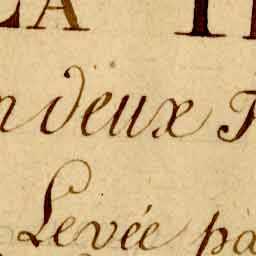 LA
n deux F
Levée pa